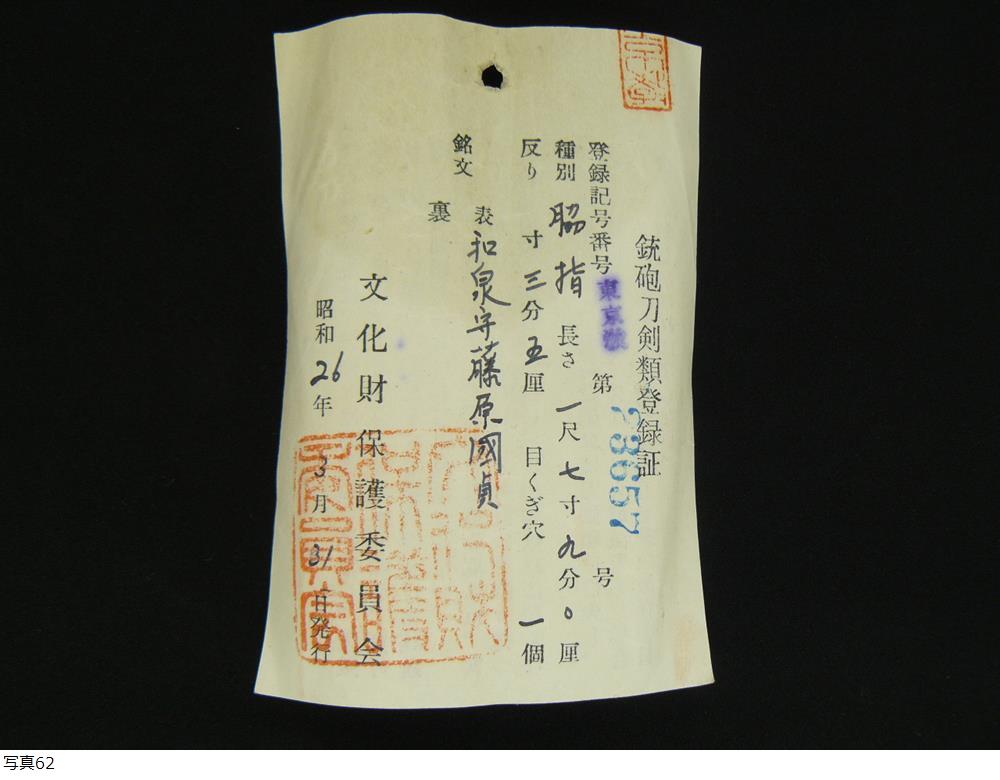 銃砲刀剣類登録証
登録記号番号 東京 第73657号
種別 脇指 長さ 一尺七寸九分〇厘
反り 寸三分五厘 目くぎ穴 一個
銘文 表 和泉守藤原國貞
裏
文化財保護委員会
昭和26年3月31日発行
写真62